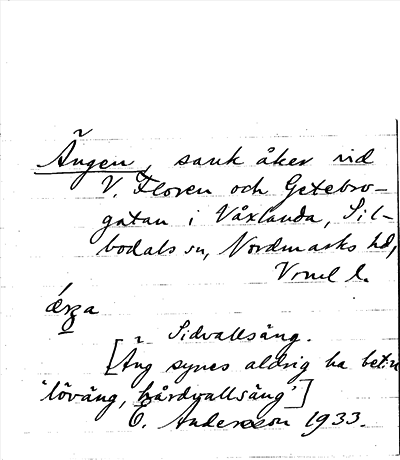 Ängen, sank åker vid
V. Floren och Getebro-
gatan i Våxlanda, Sil-
bodals sn, Nordmarks hd,
Vrml l.
Sidvallsäng.
[Äng synes aldrig ha bet:n
'löväng, hårdvallsäng']
E. Andersson 1933.